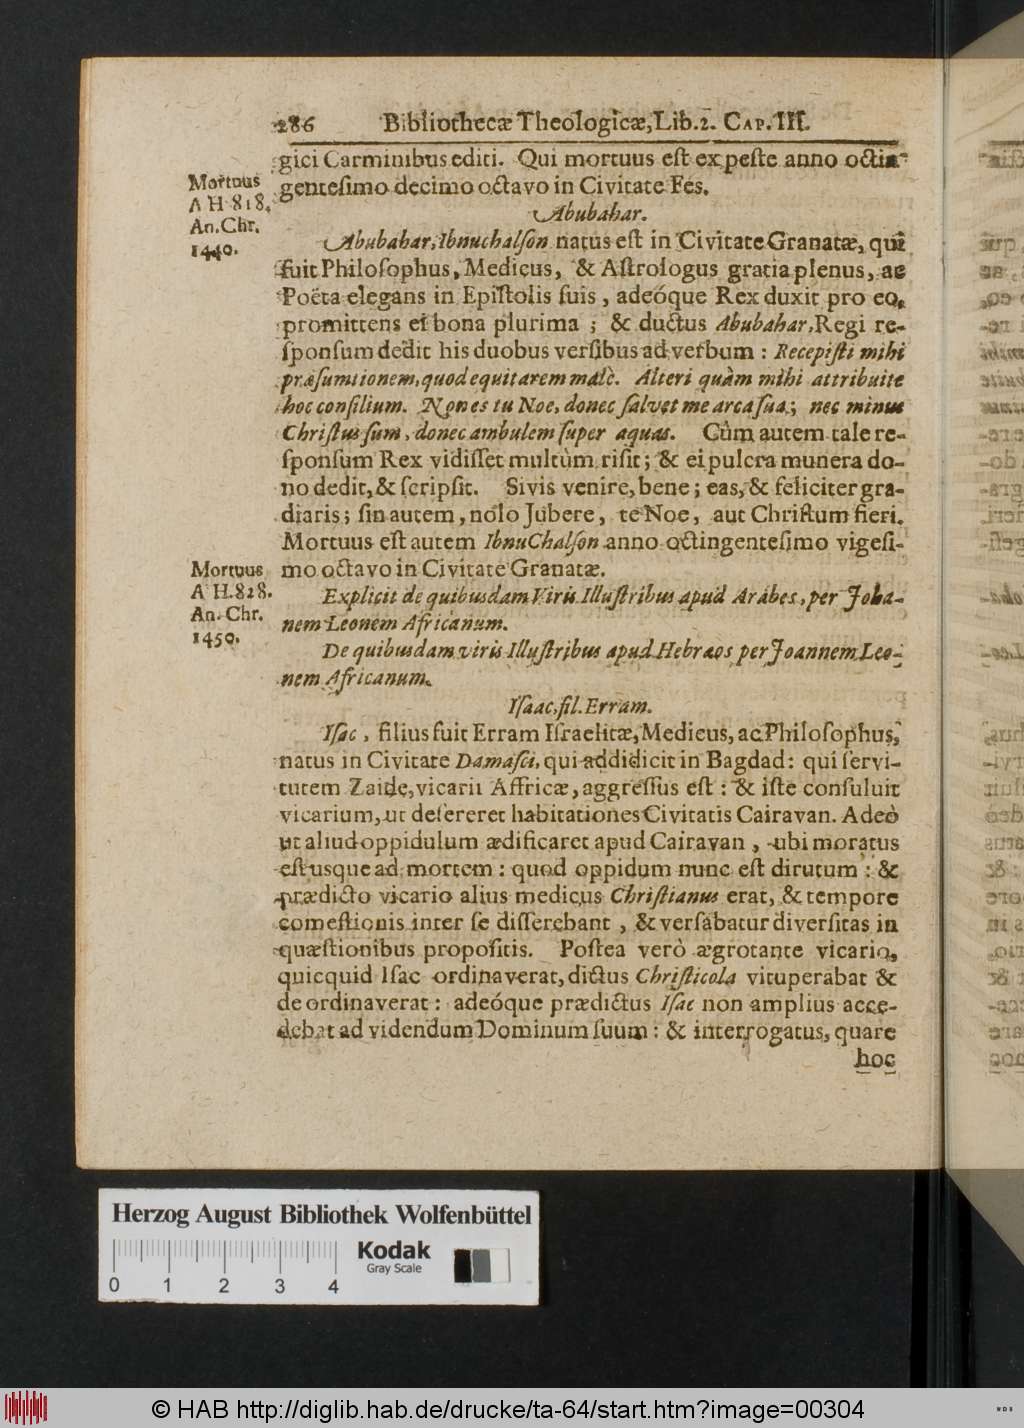 286 Bibliothecæ Theologicæ, Lib. 2. CAP. III.
gici Carminibus editi. Qui mortuus eſt ex peſte anno octin-
genteſimo decimo octavo in Civitate Fes.
Mortuus
A H 818.
An. Chr.
1440.
Abubahar.
Abubahar, Ibnuchalſon natus eſt in Civitate Granatæ, qui
fuit Philoſophus, Medicus, & Aſtrologus gratia plenus, ac
Poëta elegans in Epiſtolis ſuis, adeóque Rex duxit pro eo,
promittens ei bona plurima ; & ductus Abubahar, Regi re-
ſponſum dedit his duobus verſibus ad verbum : Recepiſti mihi
præſumtionem, quod equitarem malè. Alteri quàm mihi attribuite
hoc conſilium. Non es tu Noe, donec ſalvet me arca ſua ; nec minus
Chriſtus ſum, donec ambulem ſuper aquas. Cùm autem tale re-
ſponſum Rex vidiſſet multùm riſit ; & ei pulcra munera do-
no dedit, & ſcripſit. Sivis venire, bene ; eas, & feliciter gra-
diaris ; ſin autem, nolo Jubere, te Noe, aut Chriſtum fieri.
Mortuus eſt autem IbnuChalſon anno octingenteſimo vigeſi-
mo octavo in Civitate Granatæ.
Mortuus
A H. 828.
An. Chr.
1450.
Explicit de quibusdam Viris Illuſtribus apud Arábes, per Joha-
nem Leonem Africanum.
De quibusdam viris Illuſtribus apud Hebræos per Joannem Leo-
nem Africanum.
Iſaac, fil. Erram.
Iſac, filius fuit Erram Iſraelitæ, Medicus, ac Philoſophus,
natus in Civitate Damaſci, qui addidicit in Bagdad : qui ſervi-
tutem Zaide, vicarii Affricæ, aggreſſus eſt : & iſte conſuluit
vicarium, ut deſereret habitationes Civitatis Cairavan. Adeò
ut aliud oppidulum ædificaret apud Cairavan, ubi moratus
eſt usque ad mortem : quod oppidum nunc eſt dirutum : &
prædicto vicario alius medicus Chriſtianus erat, & tempore
comeſtionis inter ſe diſſerebant, & verſabatur diverſitas in
quæſtionibus propoſitis. Poſtea verò ægrotante vicario,
quicquid Iſac ordinaverat, dictus Chriſticola vituperabat &
deordinaverat : adeóque prædictus Iſac non amplius acce-
debat ad videndum Dominum ſuum : & interrogatus, quare
hoc
Herzog August Bibliothek Wolfenbüttel
Kodak
Gray Scale
0 1 2 3 4
© HAB http://diglib.hab.de/drucke/ta-64/start.htm?image=00304